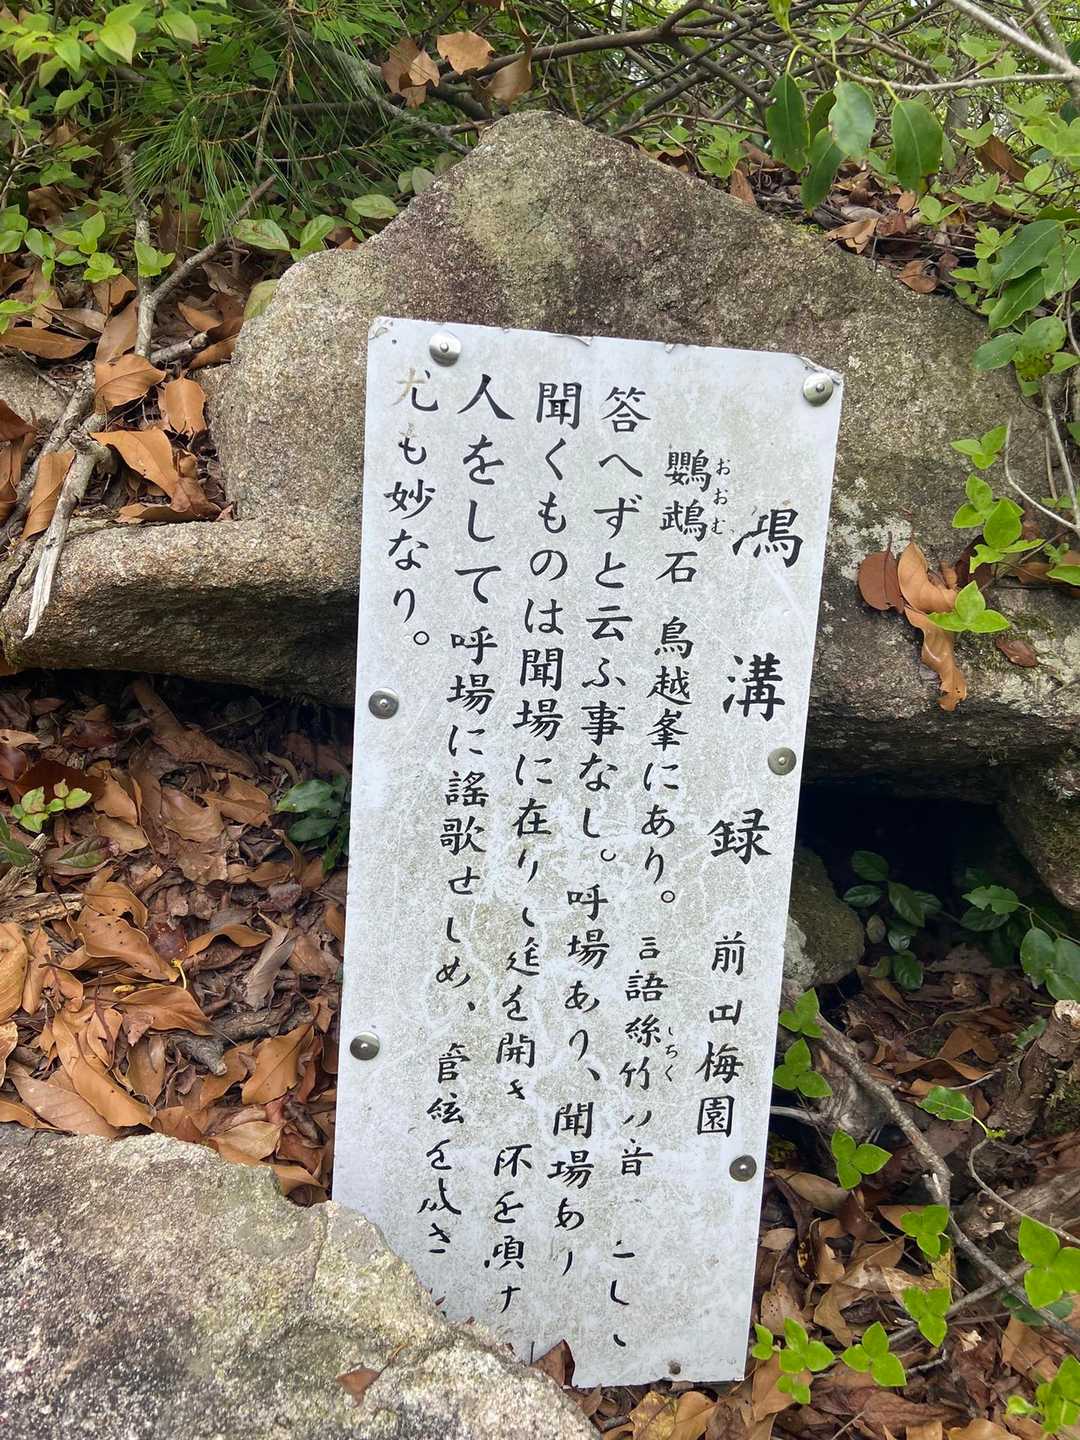 鴻溝録 前田梅園
鸚鵡石 鳥越峯にあり。言語絲竹ノ音
おおむ
しちく
答へずと云ふ事なし。呼場あり、聞場あり
聞くものは聞場に在り 筵を開き 杯を傾け
人をして呼場に謠歌せしめ、管絃を
尤も妙なり。